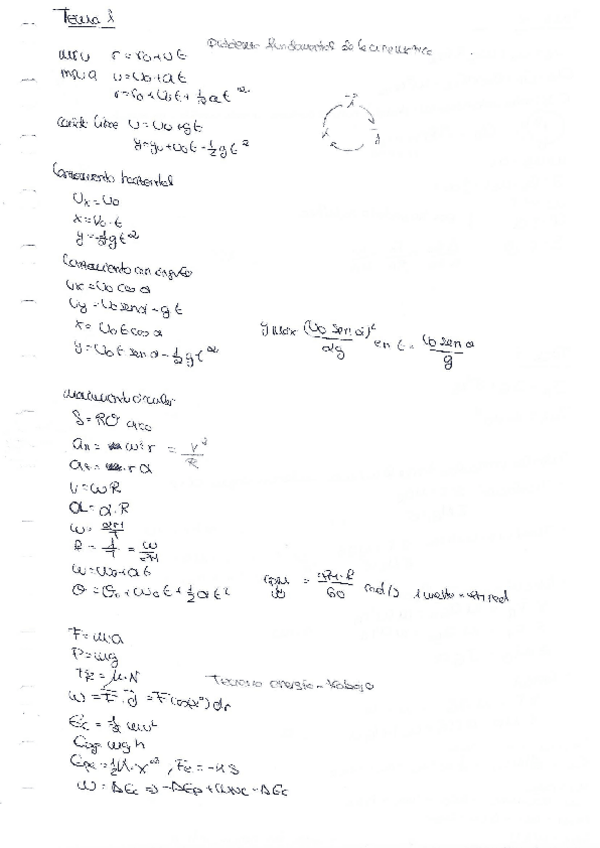 Tema 1
Problema fundamental de la cinemática
mru r = r₀ + vt
mrua v = v₀ + at
r = r₀ + v₀t + ½at²
caída libre v = v₀ + gt
y = y₀ + v₀t - ½gt²
Lanzamiento horizontal
Vx = V₀
x = V₀·t
y = -½gt²
Lanzamiento con ángulo
Vx = V₀ cos α
Vy = V₀ sen α - gt
x = V₀t cos α
y = V₀t sen α - ½gt²
y max (V₀ sen α)²/2g en t = V₀ sen α/g
movimiento circular
S = Rθ arco
an = ω²·r = v²/R
at = r α
v = ωR
a = α·R
ω = 2π/T
f = 1/T = ω/2π
ω = ω₀ + αt
θ = θ₀ + ω₀t + ½αt²
ω = 2π·f/60 rad/s 1 vuelta = 2π rad
F = m·a
P = mg
Fr = μ·N
Teorema energía - trabajo
W = F·d = F cos(α) dr
Ec = ½mv²
Epg = mgh
Epe = ½k·x², Fe = -k
W = ΔEc ⇒ -ΔEp + Wnc = ΔEc